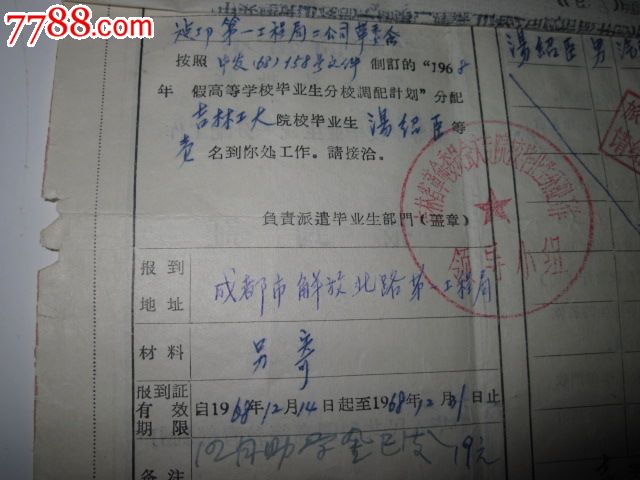 7788.com
第一工程局二公司革委会
湯紹臣 男 湯
按照 中发(68)158号文件 制訂的“1968
年 假高等学校毕业生分校調配計划”分配
吉林工大 院校毕业生 湯紹臣 等
壱 名到你处工作。請接洽。
負責派遣毕业生部門（蓋章）
領导小組
报到 地址
成都市解放北路第一工程局
材料 另寄
报到証 有效 期限
自1968年12月14日起至1968年12月31日止
备注
12月助学金已发 19元